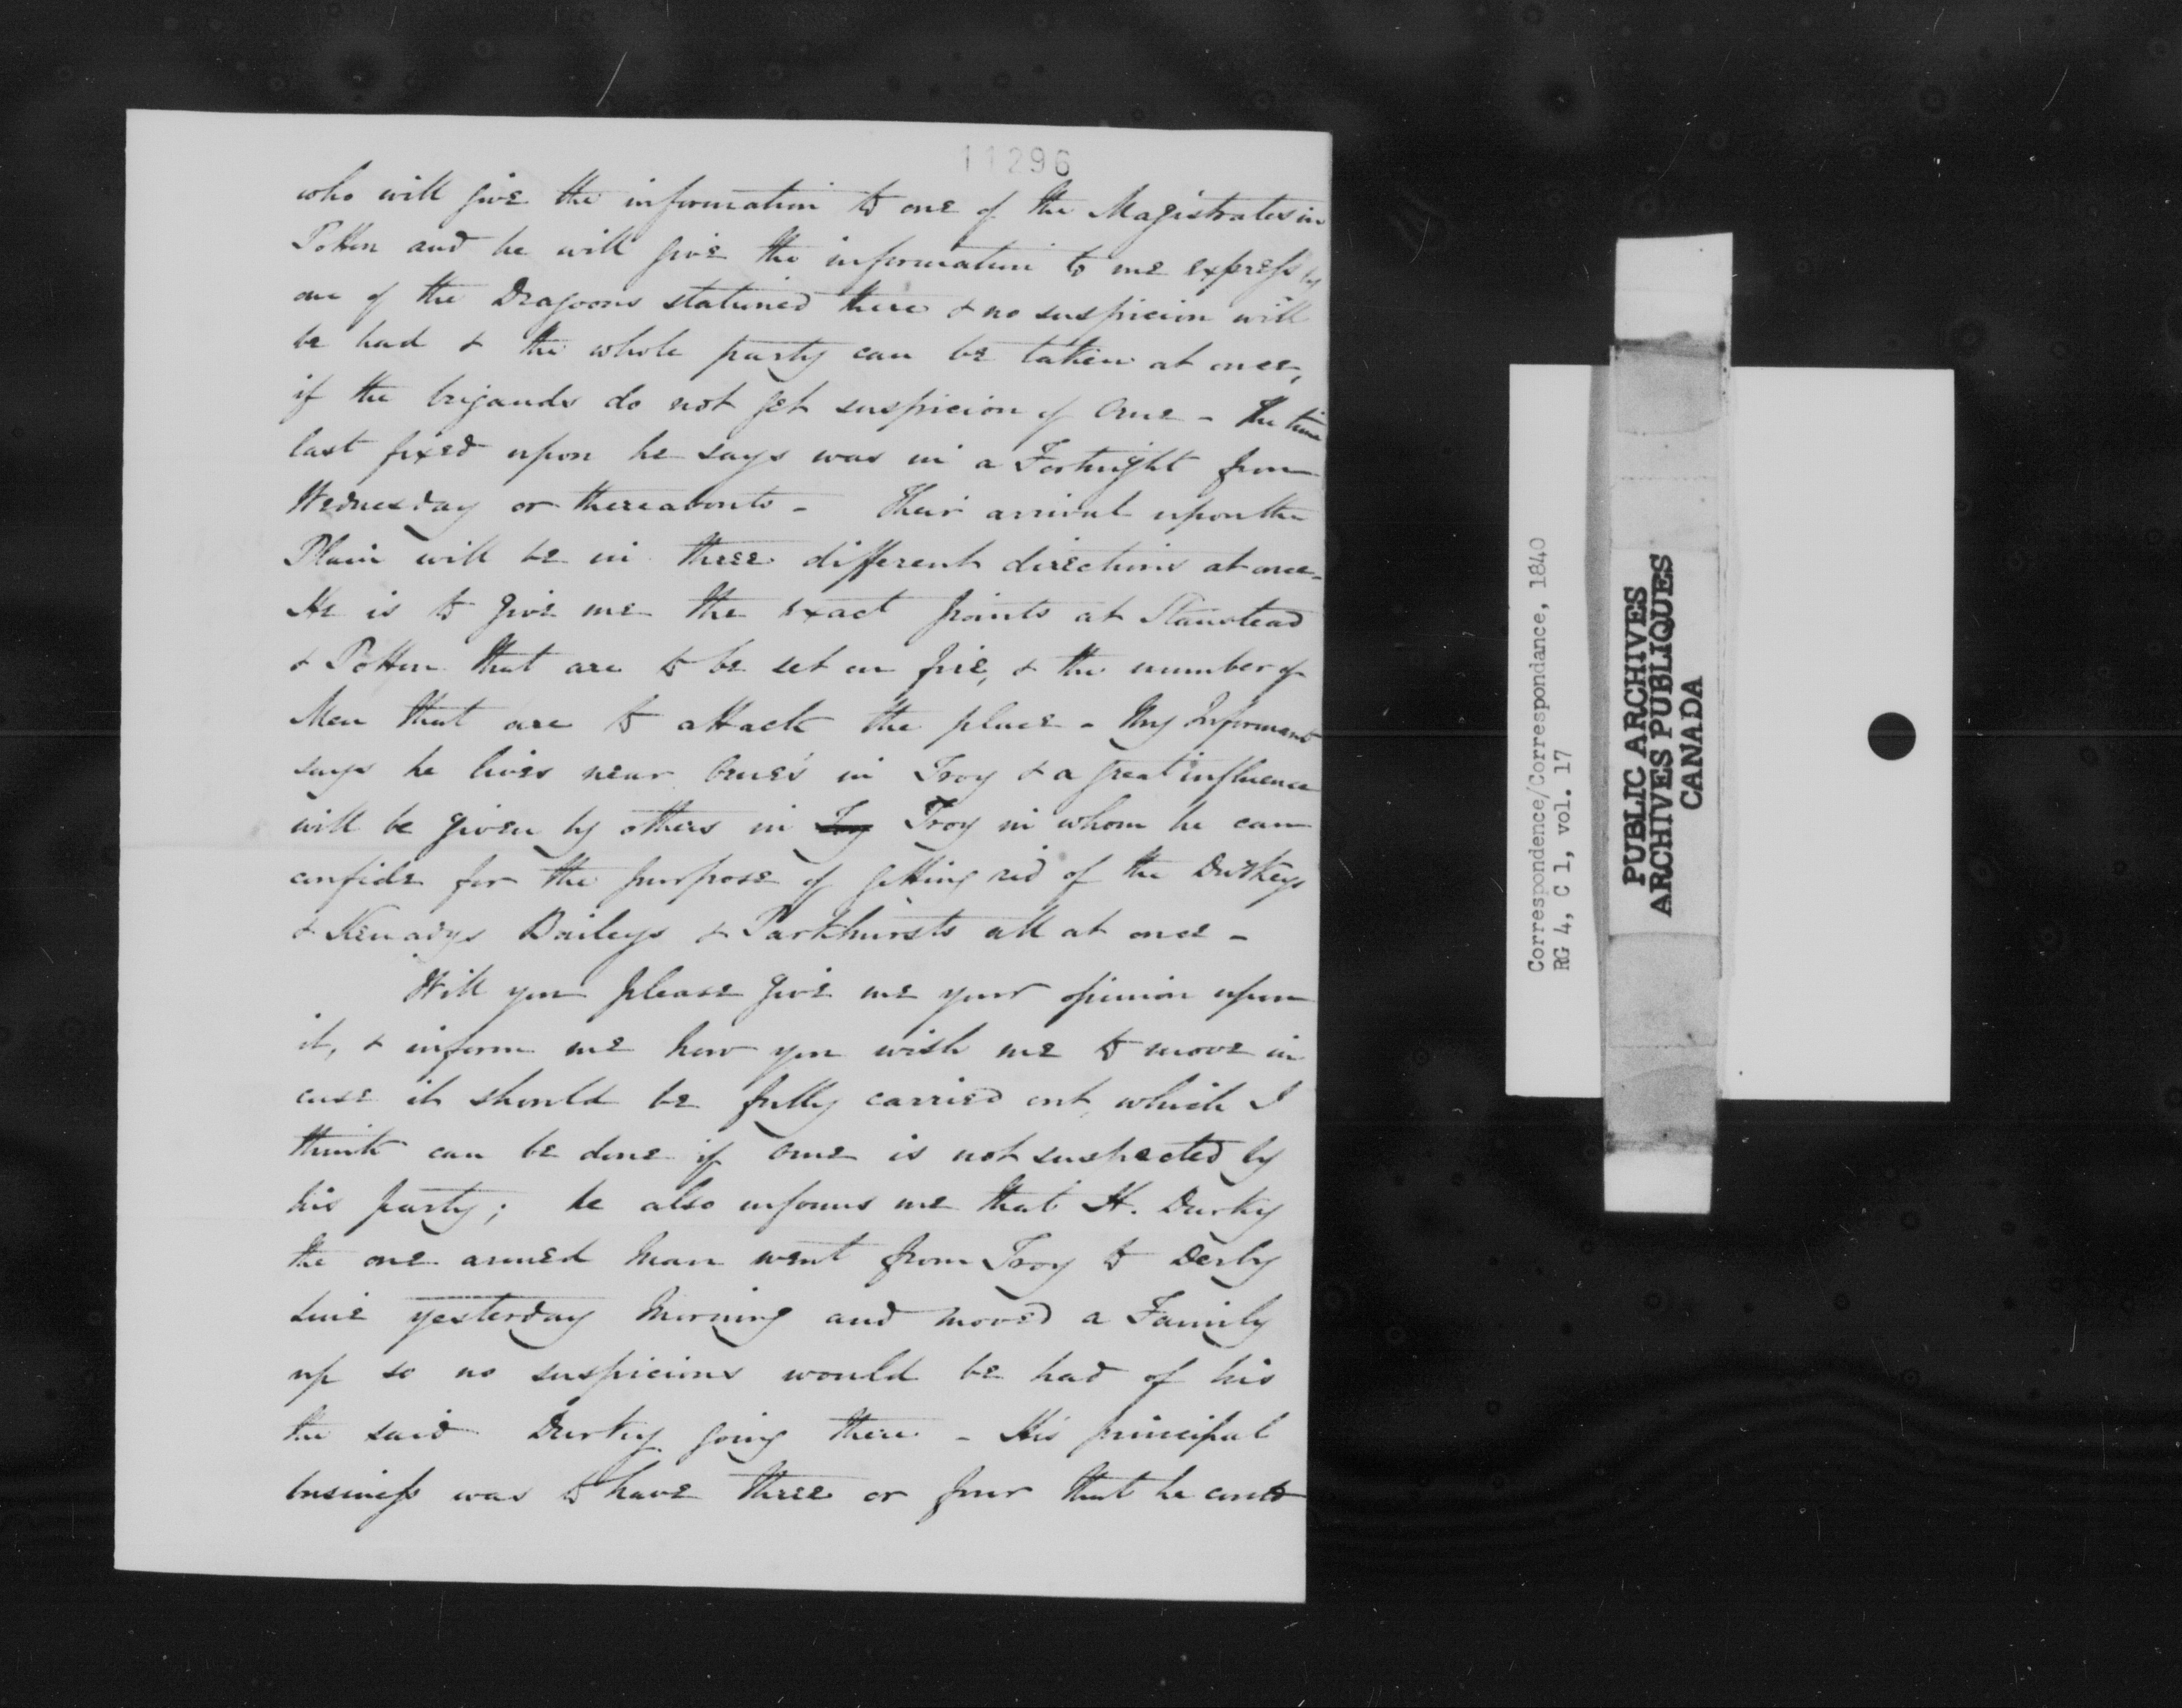 11296
who will give the information to one of the Magistrates in
Potton and he will give the information to me express by
one of the Dragoons stationed there & no suspicion will
be had & the whole party can be taken at once,
if the brigands do not get suspicion of Orne - The time
last fixed upon he says was in a Fortnight from
Wednesday or thereabouts - Their arrival upon the
Plain will be in three different directions at once -
He is to give me the exact points at Stanstead
& Potton that are to be set on fire, & the number of
Men that are to attack the place - My Informant
says he lives near Orne's in Troy & a great influence
will be given by others in Troy Troy in whom he can
confide for the purpose of getting rid of the Durkeys
& Kenadys Baileys & Parkhursts all at once -
Will you please give me your opinion upon
it, & inform me how you wish me to move in
case it should be fully carried out, which I
think can be done if Orne is not suspected by
his party; he also informs me that H. Durky
the one armed man went from Troy to Derby
Line yesterday Morning and moved a Family
up so no suspicions would be had of his
the said Durky going there - His principal
business was to have three or four that he could
Correspondence/Correspondance, 1840
RG 4, C 1, vol. 17
PUBLIC ARCHIVES
ARCHIVES PUBLIQUES
CANADA